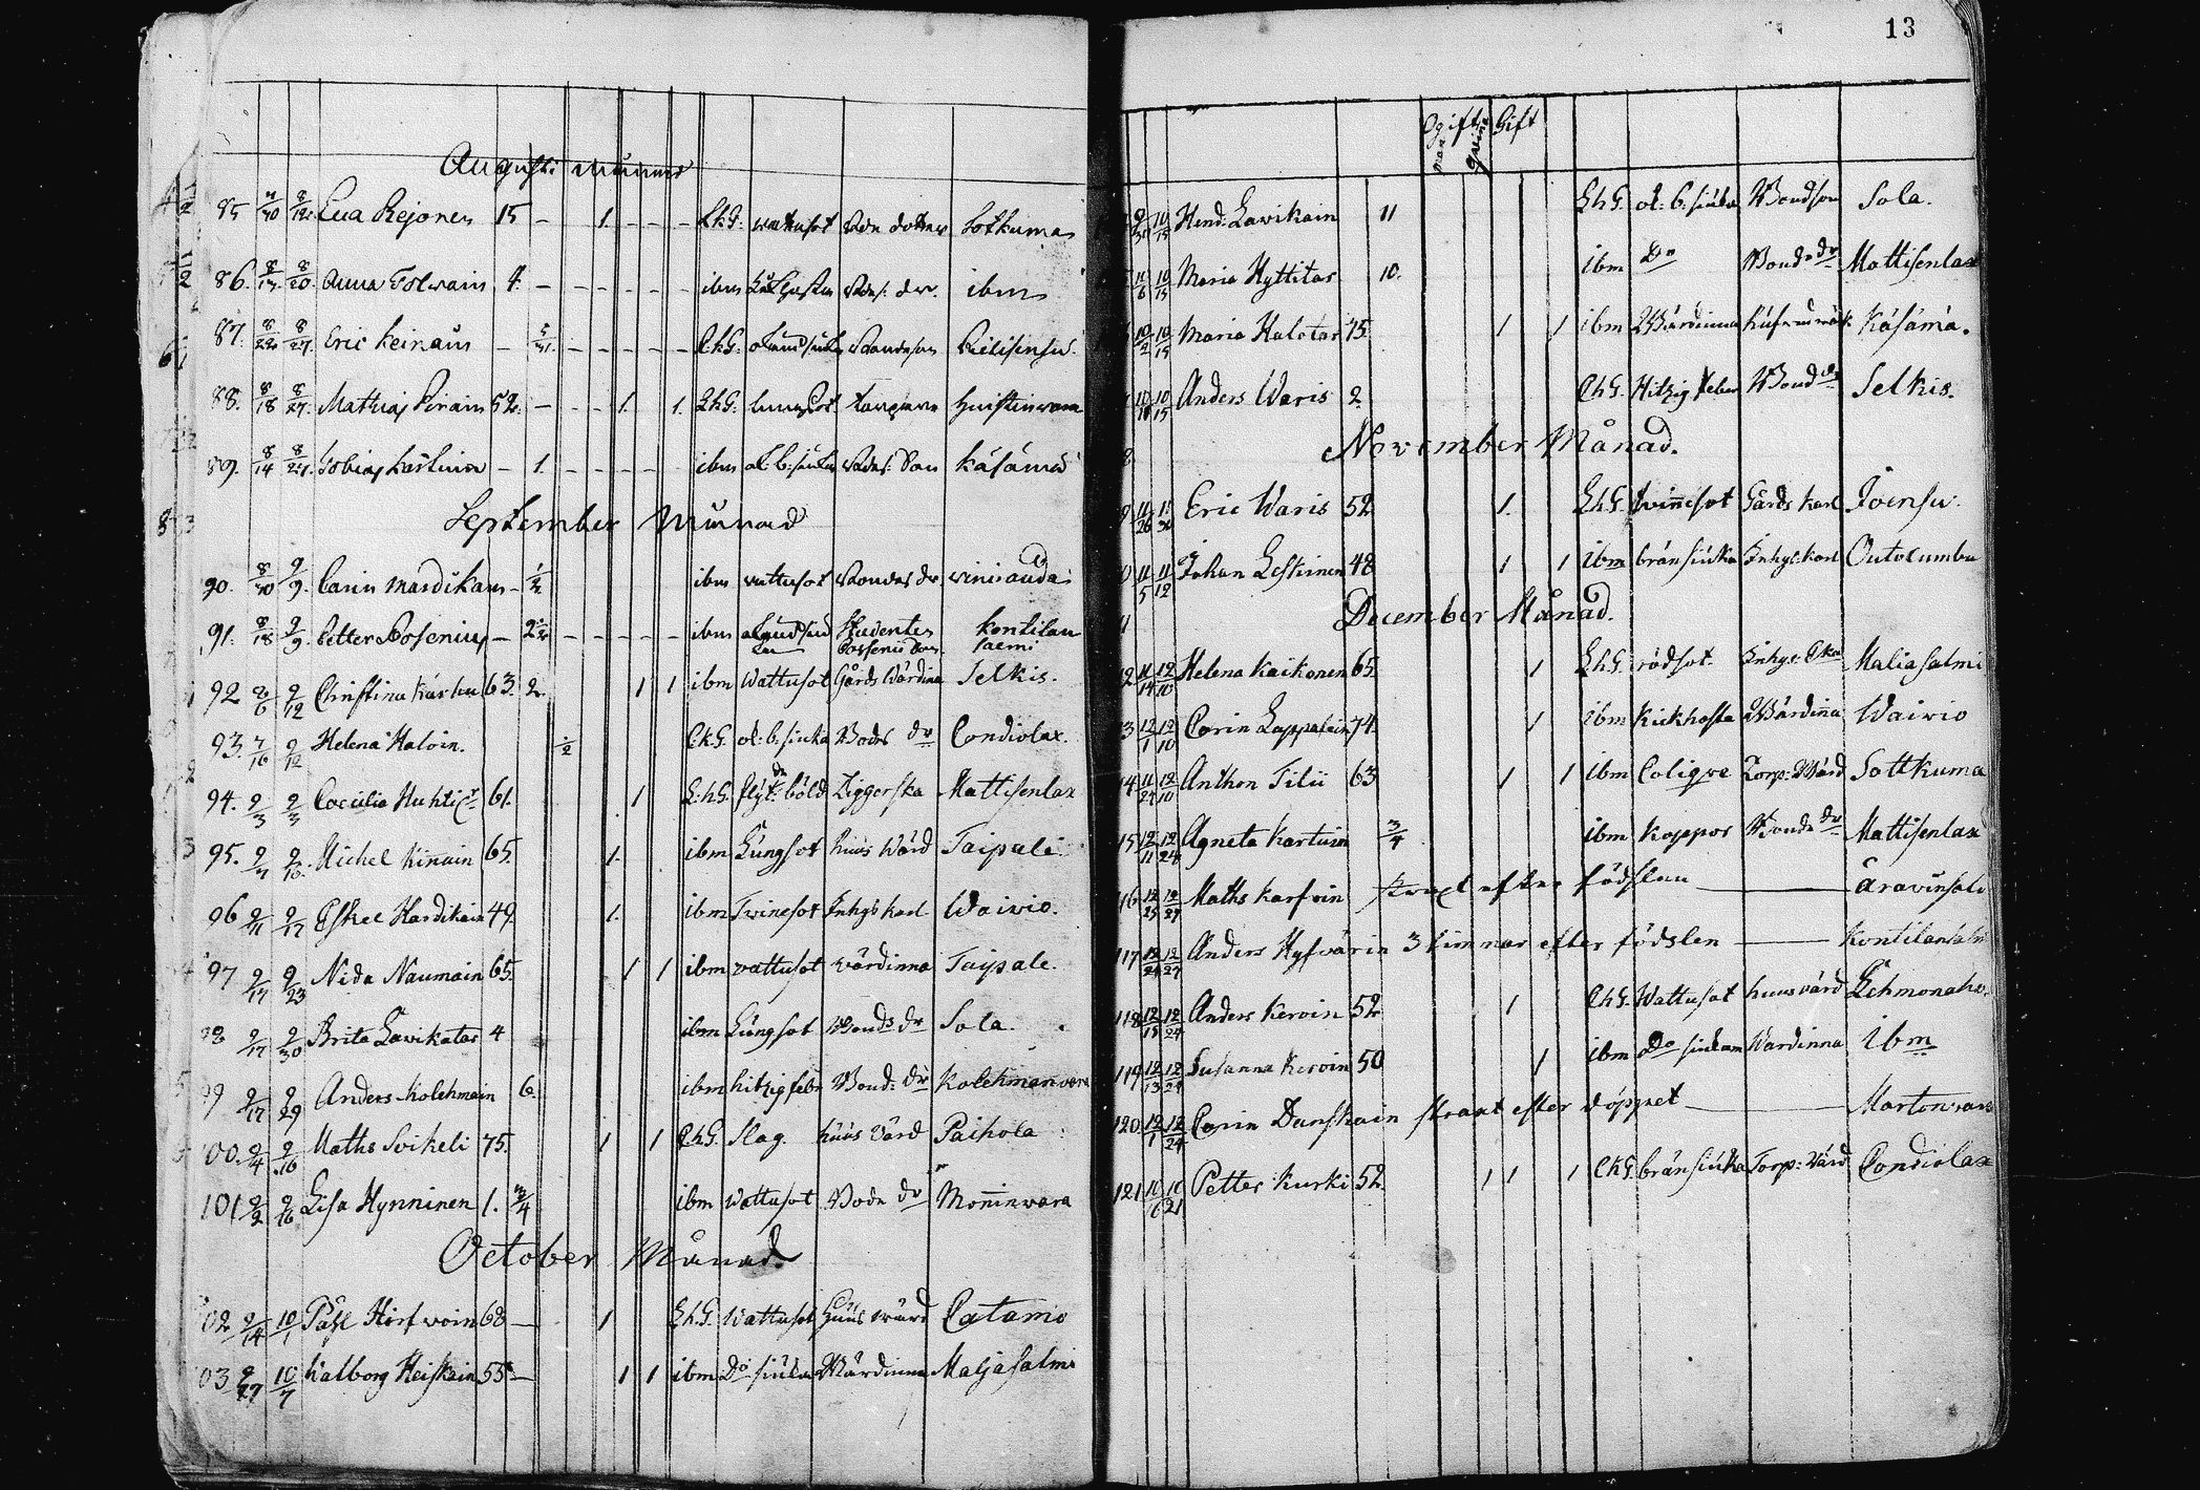 Augusti Månad
85 Eva Rejonen 15 - 1. - - - L.h.G: wattusot dotter Sotkuma
86. 8/20. Anna 4. - - - - - - ibm ibm
87. 8/22. 8/27. Eric Keinain - - - - - - L.h.G:
88. 8/18 8/27. Mathias Pirain 52. - - - 1. 1. L.h.G: lungsot
89. 8/14 8/27. Tobias - 1. - - - - ibm Son Käsämä
September Månad
90. 9/9. Carin Mardikain - 1/2 ibm wattusot Bondes dr
91. 8/18 9/9. Petter Posenius - - - - - - ibm Studentes Kontilan
Possenii son. saemi
92 8/6 9/12 Christina Karhu 63. 2. 1 1 ibm Wattusot Gårds Wärdina Selkis.
93. 7/16 9/12 Helena Haloin. 1/2 L.h.G. ok: b. siuka dr Condiolax.
94. 9/3 9/3 Coecilia 61. 1 L:h.G. böld Tiggerska Mattisenlax
95. Michel Kinain 65. 1. ibm Lungsot Huus Wärd Taipale.
96 9/11 9/17 Eskel Hardikain 49. 1. ibm Twinesot Inhys karl Waivio.
97 9/17 9/23 Nida Naumain 65. 1 1 ibm vattusot wärdinna Taipale.
98 9/17 9/30 Brita Lavikatar 4 ibm Lungsot Bonds dr Sola.
99 9/17 9/29 Anders Kolehmain 6. ibm hitzig febr Bond: dr Kolehmanvara
100. 9/4 9/16 Maths Soikeli 75. 1 1 L.h.G. Slag. huus Värd Paihola
101 9/2 9/16 Lisa Hynninen 1. 3/4 ibm Wattusot Bode dr Moninwara
October Månad.
02 9/14 10/1 Påhl Hirfwoin 68 - 1 L.h.G. Wattusot Huus wärd Catamo
03 9/27 10/7 Walborg Heiskain 55 - 1 1 ibm Do siuka Wärdinna Maljasalmi
13
Ogift Gift
10/15 Hend: Lavikain 11 L.h.G. ok: b. siuka Bondson Sola.
10/6 10/15 Maria Hyttitar 10. ibm Do Bonde dr Mattisenlax
10/2 10/15 Maria Halotar 75. 1 1 ibm Wärdinna Käsämä.
10/15 Anders Waris 2 L.h.G. Hitzig feber Bond Selkis.
November Månad.
11/26 Eric Waris 52 1. L.h.G. twinesot Gårds karl Joensu.
11/5 11/12 Johan Leskinen 48 1 1 ibm bränsiuka Inhys karl Outocumbu
December Månad.
11/14 12/10 Helena Kaikonen 65. 1 L.h.G. rödsot. Inhys Maliasalmi
12/1 12/10 Carin Lappalain 74. 1 ibm Kickhosta Wärdinna Waivio
12/10 Anthon Tilii 63 1 1 ibm Colique Torp: Wärd Sottkuma
15 12/11 12/24 Agneta Kartuin 3/4 ibm Koppor Bonde dr Mattisenlax
16 12/25 12/27 Maths Karfoin straxt efter födslen Aravinsalo
117 12/27 Anders Hyfvärin 3 timmar efter födslen Kontilansalmi
118 12/15 12/24 Anders Kervin 52 1 L.h.G. Wattusot huuswärd Lehmonaho.
119 12/13 12/24 Susanna Kervin 50 1 ibm Do siukan Wärdinna ibm
120 12/1 12/24 Carin Danskain straxt efter döppet Martonvara
121 10/16 10/21 Petter Kurki 52. 1 1 1 L.h.G. bränsiuka Torp: Wärd Condiolax